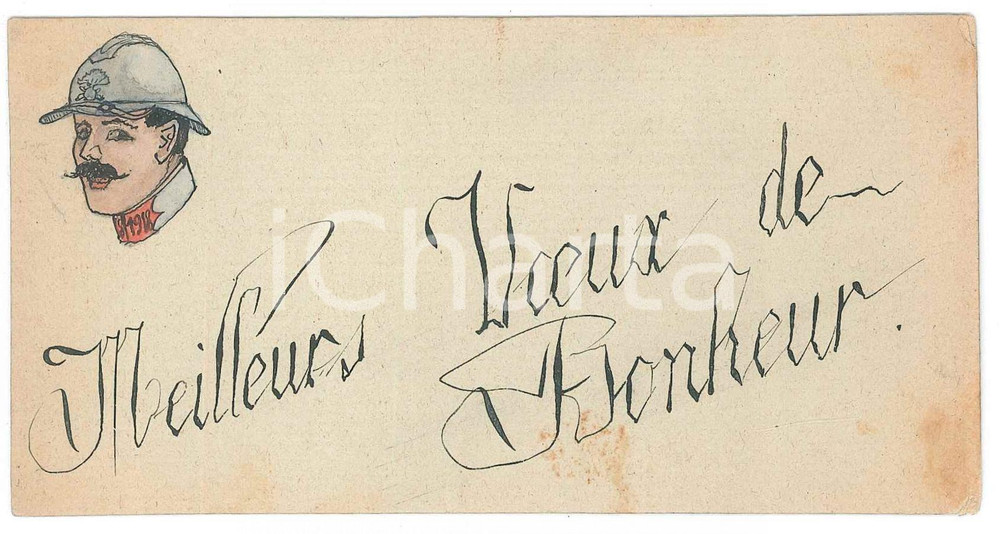 Meilleurs Vœux de
Bonheur.
1918
iCharta